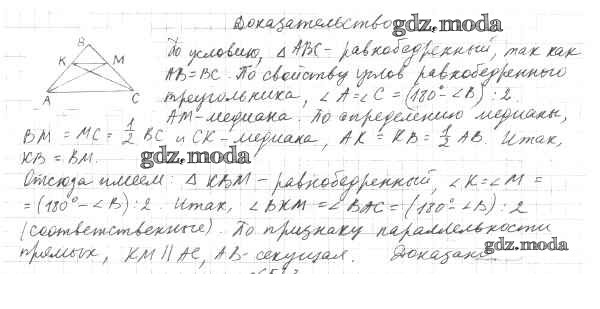 Доказательство gdz.moda
B
K M
A C
По условию, △ABC – равнобедренный, так как
AB=BC. По свойству углов равнобедренного
треугольника, ∠A=∠C = (180°-∠B) : 2.
AM-медиана. По определению медианы,
BM = MC = 1/2 BC и CK - медиана, AK = KB = 1/2 AB. Итак,
KB = BM. gdz.moda
Отсюда имеем: △KBM – равнобедренный, ∠K=∠M =
= (180°-∠B) : 2. Итак, ∠BKM =∠BAC= (180°-∠B) : 2
(соответственные). По признаку параллельности
прямых, KM || AC, AB-секущая. Доказано gdz.moda